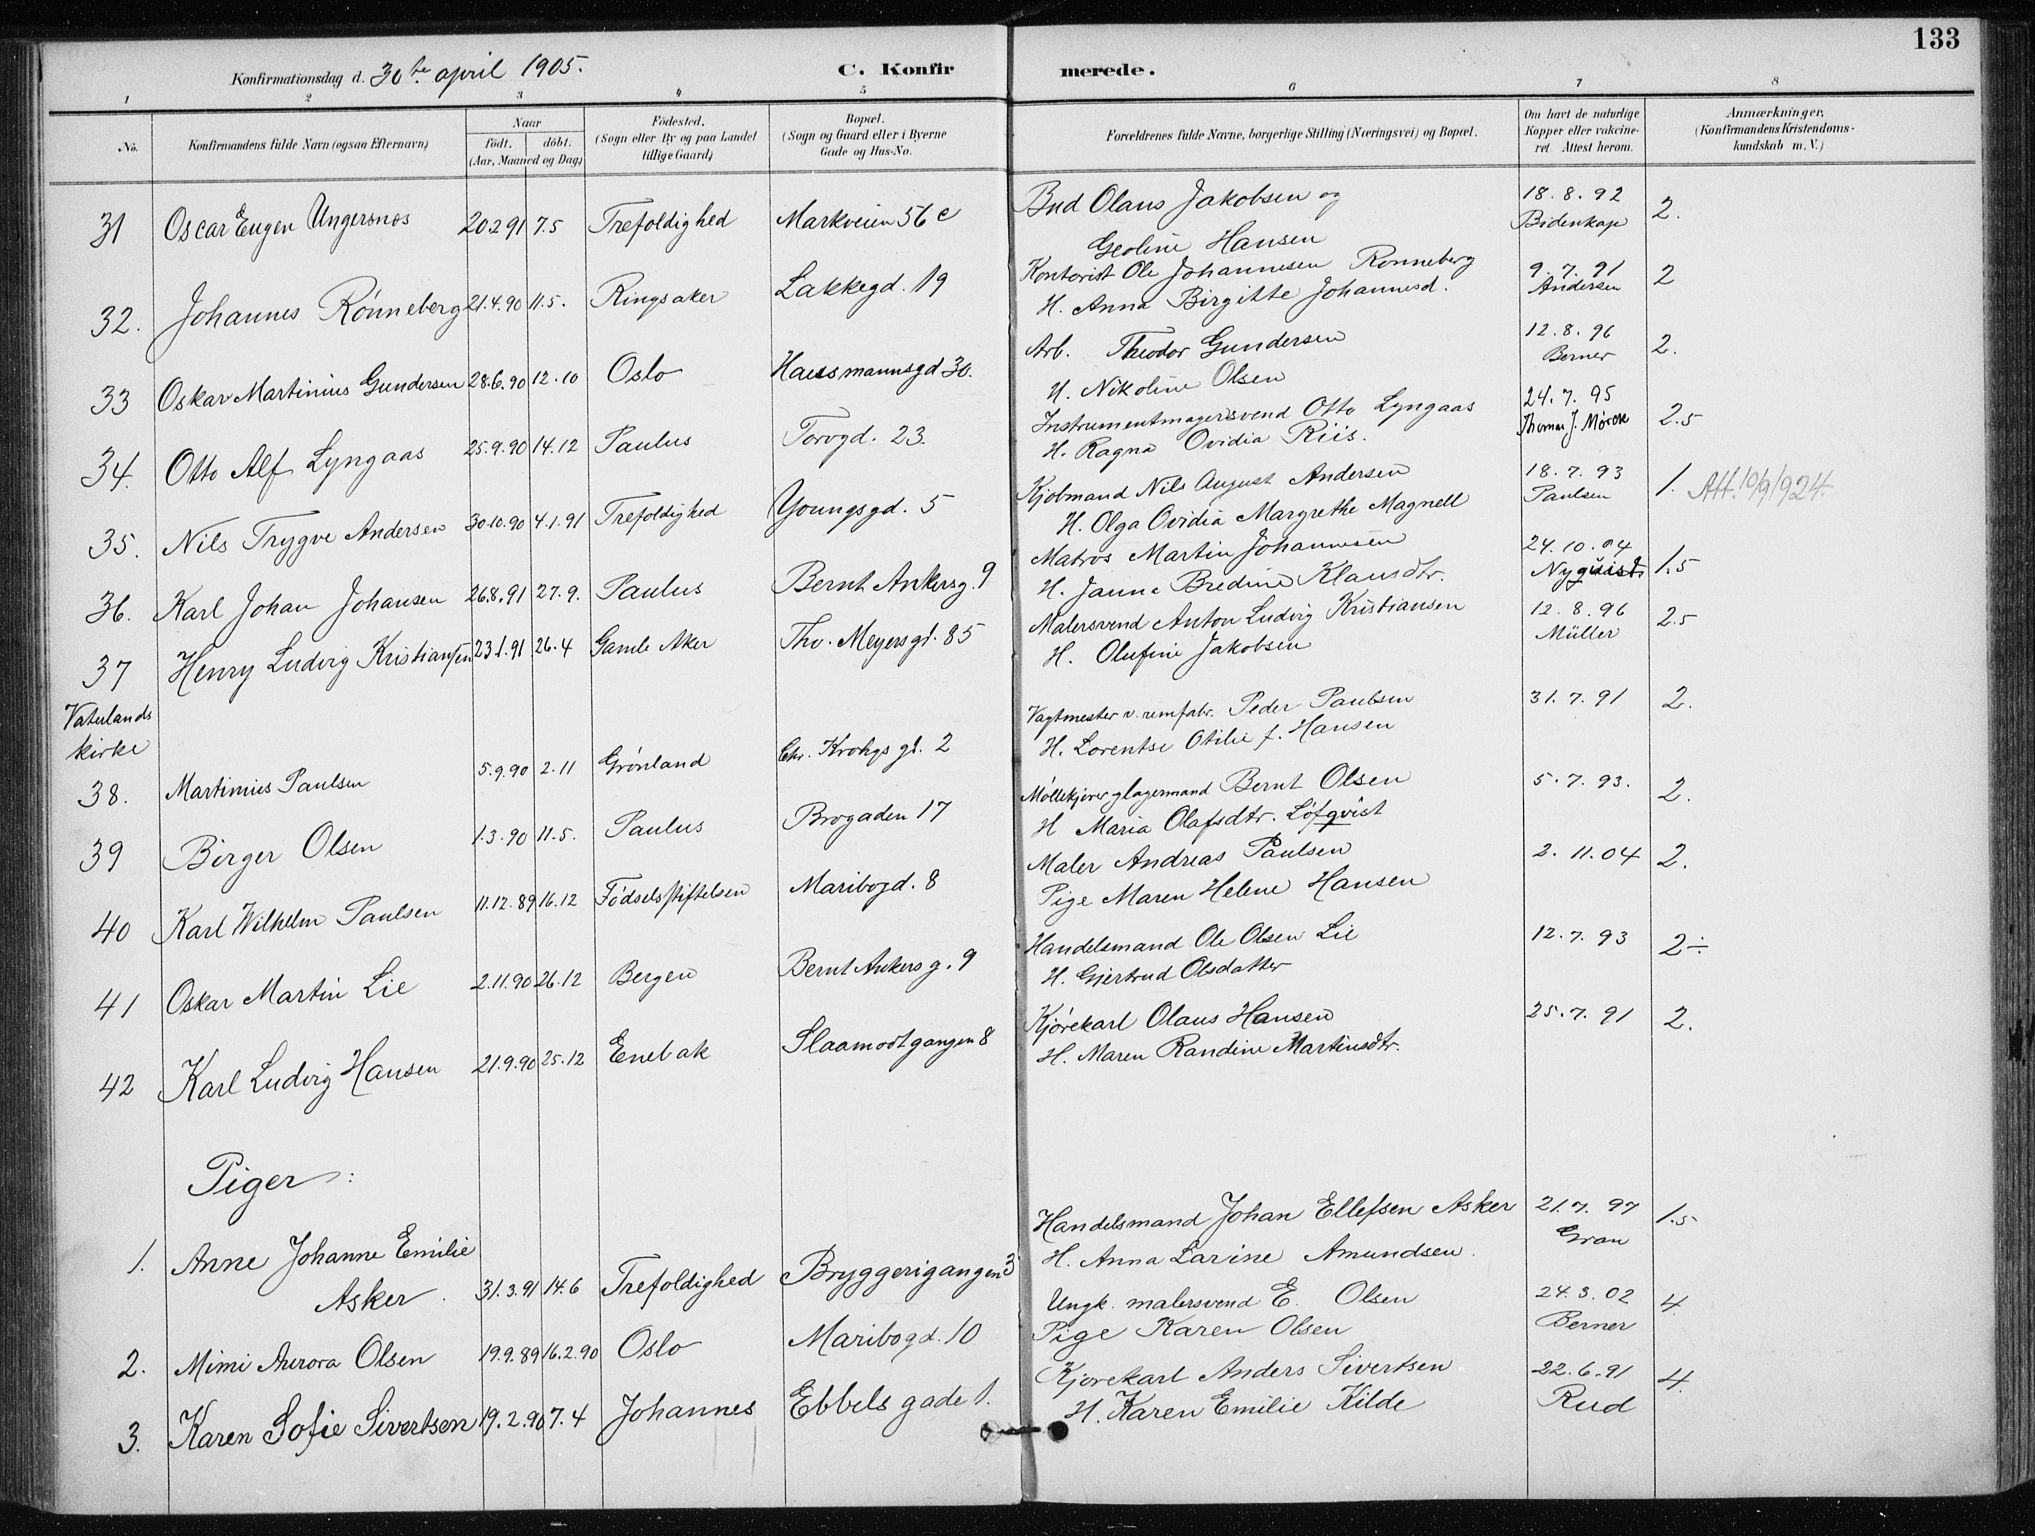 133
Konfirmationsdag d. 30te april 1905.
C. Konfirmerede.
1 2 3 4 5 6 7 8
No.
Konfirmandens fulde Navn (ogsaa Efternavn)
Naar
födt. döbt.
(Aar, Maaned og Dag)
Födested.
(Sogn eller By og paa Landet
tillige Gaard)
Bopæl.
(Sogn og Gaard eller i Byerne
Gade og Hus-No.
Forældrenes fulde Navne, borgerlige Stilling (Næringsvei) og Bopæl.
Om havt de naturlige
Kopper eller vakcine-
ret. Attest herom.
Anmærkninger.
(Konfirmandens Kristendoms-
kundskab m. V.)
31 Oscar Eugen Ungersnes 20.2.91 7.5 Trefoldighed Markveien 56 c Bud Olaus Jakobsen og 18.8.92 2.
Geoline Hansen Bidenkap
32. Johannes Rönneberg 21.4.90 11.5. Ringsaker Lakkegd. 19 Kontorist Ole Johannesen Rønneberg 9.7.91 2
H. Anna Birgitte Johannesd. Andersen
33 Oskar Martinius Gundersen 28.6.90 12.10 Oslo Hausmannsgd 30. Arb. Theodor Gundersen 12.8.96 2.
H. Nikoline Olsen Berner
34. Otto Alf Lyngaas 25.9.90 14.12 Paulus Torvgd. 23. Instrumentmagersvend Otto Lyngaas 24.7.95 2.5
H. Ragna Ovidia Riis. Thomas J. Mørch
35. Nils Trygve Andersen 30.10.90 4.1.91 Trefoldighed Youngsgd. 5 Kjøbmand Nils August Andersen 18.7.93 1. Att. 10/9 1924.
H. Olga Ovidia Margrethe Magnell Paulsen
36. Karl Johan Johansen 26.8.91 27.9. Paulus Bernt Ankersg. 9 Matros Martin Johannesen 24.10.04 1.5
H. Janna Bredine Klausdtr. Nyquist
37 Henry Ludvig Kristiansen 23.1.91 26.4 Gamle Aker Thv. Meyersgd. 85 Malersvend Anton Ludvig Kristiansen 12.8.96 2.5
H. Olufine Jakobsen Müller
Vaterlands
kirke
38. Martinius Paulsen 5.9.90 2.11 Grønland Chr. Krohgs gd. 2 Vagtmester v. remfabr. Peder Paulsen 31.7.91 2.
H. Lorentse Otilie f. Hansen
39 Birger Olsen 1.3.90 11.5. Paulus Brogaden 17 Møllekjører glagermand Bernt Olsen 5.7.93. 2.
H Maria Olafsdtr. Löfqvist
40 Karl Wilhelm Paulsen 11.12.89 16.12 Fødselsstiftelsen Maribogd. 8 Maler Andreas Paulsen 2.11.04 2.
Pige Maren Helene Hansen
41 Oskar Martin Lie 2.11.90 26.12 Bergen Bernt Ankersg. 9 Handelsmand Ole Olsen Lie 12.7.93 2÷
H. Gjertrud Olsdatter
42 Karl Ludvig Hansen 21.9.90 25.12 Enebak Slaamodtgangen 8 Kjørekarl Olaus Hansen 25.7.91 2.
H. Maren Randine Martinsdtr.
Piger:
1. Anne Johanne Emilie
Asker. 31.3.91 14.6 Trefoldighed Bryggerigangen 3 Handelsmand Johan Ellefsen Asker 21.7.97 1.5
H. Anna Larine Amundsen. Gran
2. Mimi Aurora Olsen 19.9.89 16.2.90 Oslo Maribogd. 10 Ungk. malersvend E. Olsen 24.3.02 4.
Pige Karen Olsen Berner
3. Karen Sofie Sivertsen 19.2.90 7.4 Johannes Ebbels gade 1. Kjørekarl Anders Sivertsen 22.6.91 4.
H. Karen Emilie Kilde Rud